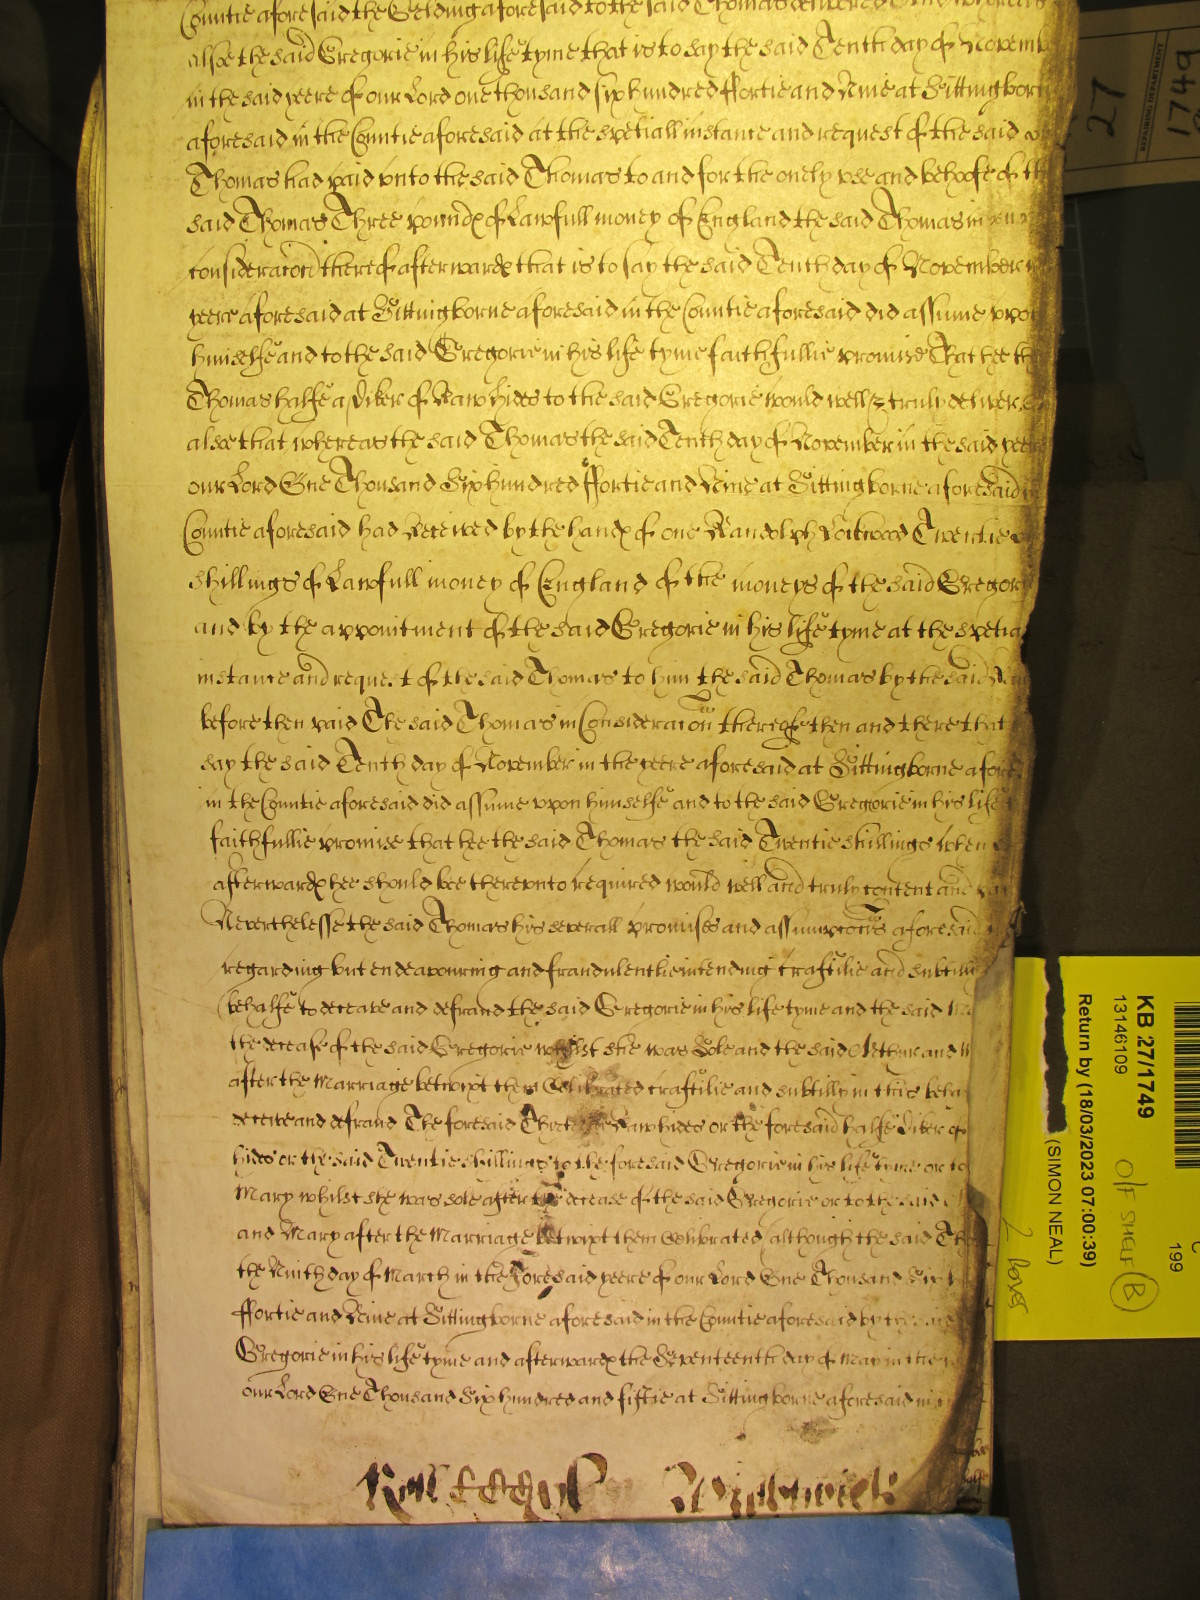 Countie aforesaid the Gelding aforesaid to the said Thomas delivered And whereas
alsoe the said Gregorie in his life tyme that is to say the said Tenth day of Novemb
in the said yeere of our Lord one thousand six hundred ffortie and Nine at Sittingborn
aforesaid in the Countie aforesaid at the spetiall instance and request of the said
Thomas had paid vnto the said Thomas to and for the onely vse and behoofe of th
said Thomas Three pound of Lawfull money of England the said Thomas in
consideracon thereof afterward that is to say the said Tenth day of November
yeere aforesaid at Sittingborne aforesaid in the Countie aforesaid did assume vpo
himselfe and to the said Gregorie in his life tyme faithfullie promise That hee th
Thomas halfe a Diker of Raw hides to the said Gregorie would well & truly deliver
alsoe that whereas the said Thomas the said Tenth day of November in the said yeere
our Lord One Thousand Six hundred ffortie and Nine at Sittingborne aforesaid
Countie aforesaid had Received by the hand of one Randolph Twentie
shillings of Lawfull money of England of the moneys of the said Gregory
and by the appointment of the said Gregorie in his life tyme at the spetia
instance and request of the said Thomas to him the said Thomas by the said
before then paid The said Thomas in Consideracon thereof then and there that
say the said Tenth day of November in the yeere aforesaid at Sittingborne afores
in the Countie aforesaid did assume vpon himselfe and to the said Gregorie in his life
faithfullie promise that hee the said Thomas the said Twentie shillings when
afterward hee should bee therevnto required would well and truly content and
Neverthelesse the said Thomas his severall promises and assumpcons aforesaid
regarding but endeavouring and fraudulentlie intending craftilie and subtilli
behalfe to deceave and defraud the said Gregorie in his life tyme and the said
the decease of the said Gregorie whilst shee was Sole and the said Arthur and
after the Marriage betwixt them Celibrated craftilie and subtilly in this beha
deceive and defraud The foresaid Three Raw hides or the foresaid halfe Diker of
hides or the said Twentie shillings to the foresaid Gregorie in his life tyme or to
Mary whilst she was sole after the decease of the said Gregorie or to the said
and Mary after the Marriage betwixt them Celibrated (although the said Th
the Ninth day of March in the foresaid yeere of our Lord One Thousand Six
ffortie and Nine at Sittingborne aforesaid in the Countie aforesaid by the said
Gregorie in his life tyme and afterward the Seventeenth day of May in the
our Lord One Thousand Six hundred and fiftie at Sittingborne aforesaid in
27
1749
KB 27/1749
13146109
Return by (18/03/2023 07:00:39)
(SIMON NEAL)
O/F SHELF B
199
2 boxes